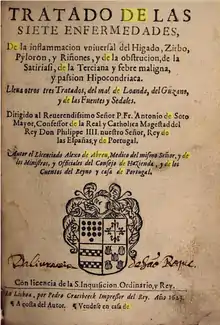 TRATADO DE LAS
SIETE ENFERMEDADES,
De la inflammacion vniuersal del Higado, Zirbo,
Pyloron, y Riñones, y de la obstrucion, de la
Satiriasi, de la Terciana y febre maligna,
y passion Hipocondriaca.
Lleua otros tres Tratados, del mal de Loanda, del Guzano,
y de las Fuentes y Sedales.
Dirigido al Reuerendissimo Señor P. Fr. Antonio de Soto
Mayor, Confessor de la Real y Catholica Magestad del
Rey Don Philippe IIII. nuestro Señor, Rey de
las Españas, y de Portugal.
Autor el Licenciado Alexo de Abreu, Medico del mismo Señor, y de
los Ministros, y Officiales del Consejo de Hazienda, y de los
Cuentos del Reyno y casa de Portugal.
De São Roque
Con licencia de la S. Inquisicion, Ordinario, y Rey.
En Lisboa, por Pedro Craesbeeck Impressor del Rey. Año 1623.
¶ A costa del Autor. ¶ Vendese en casa de